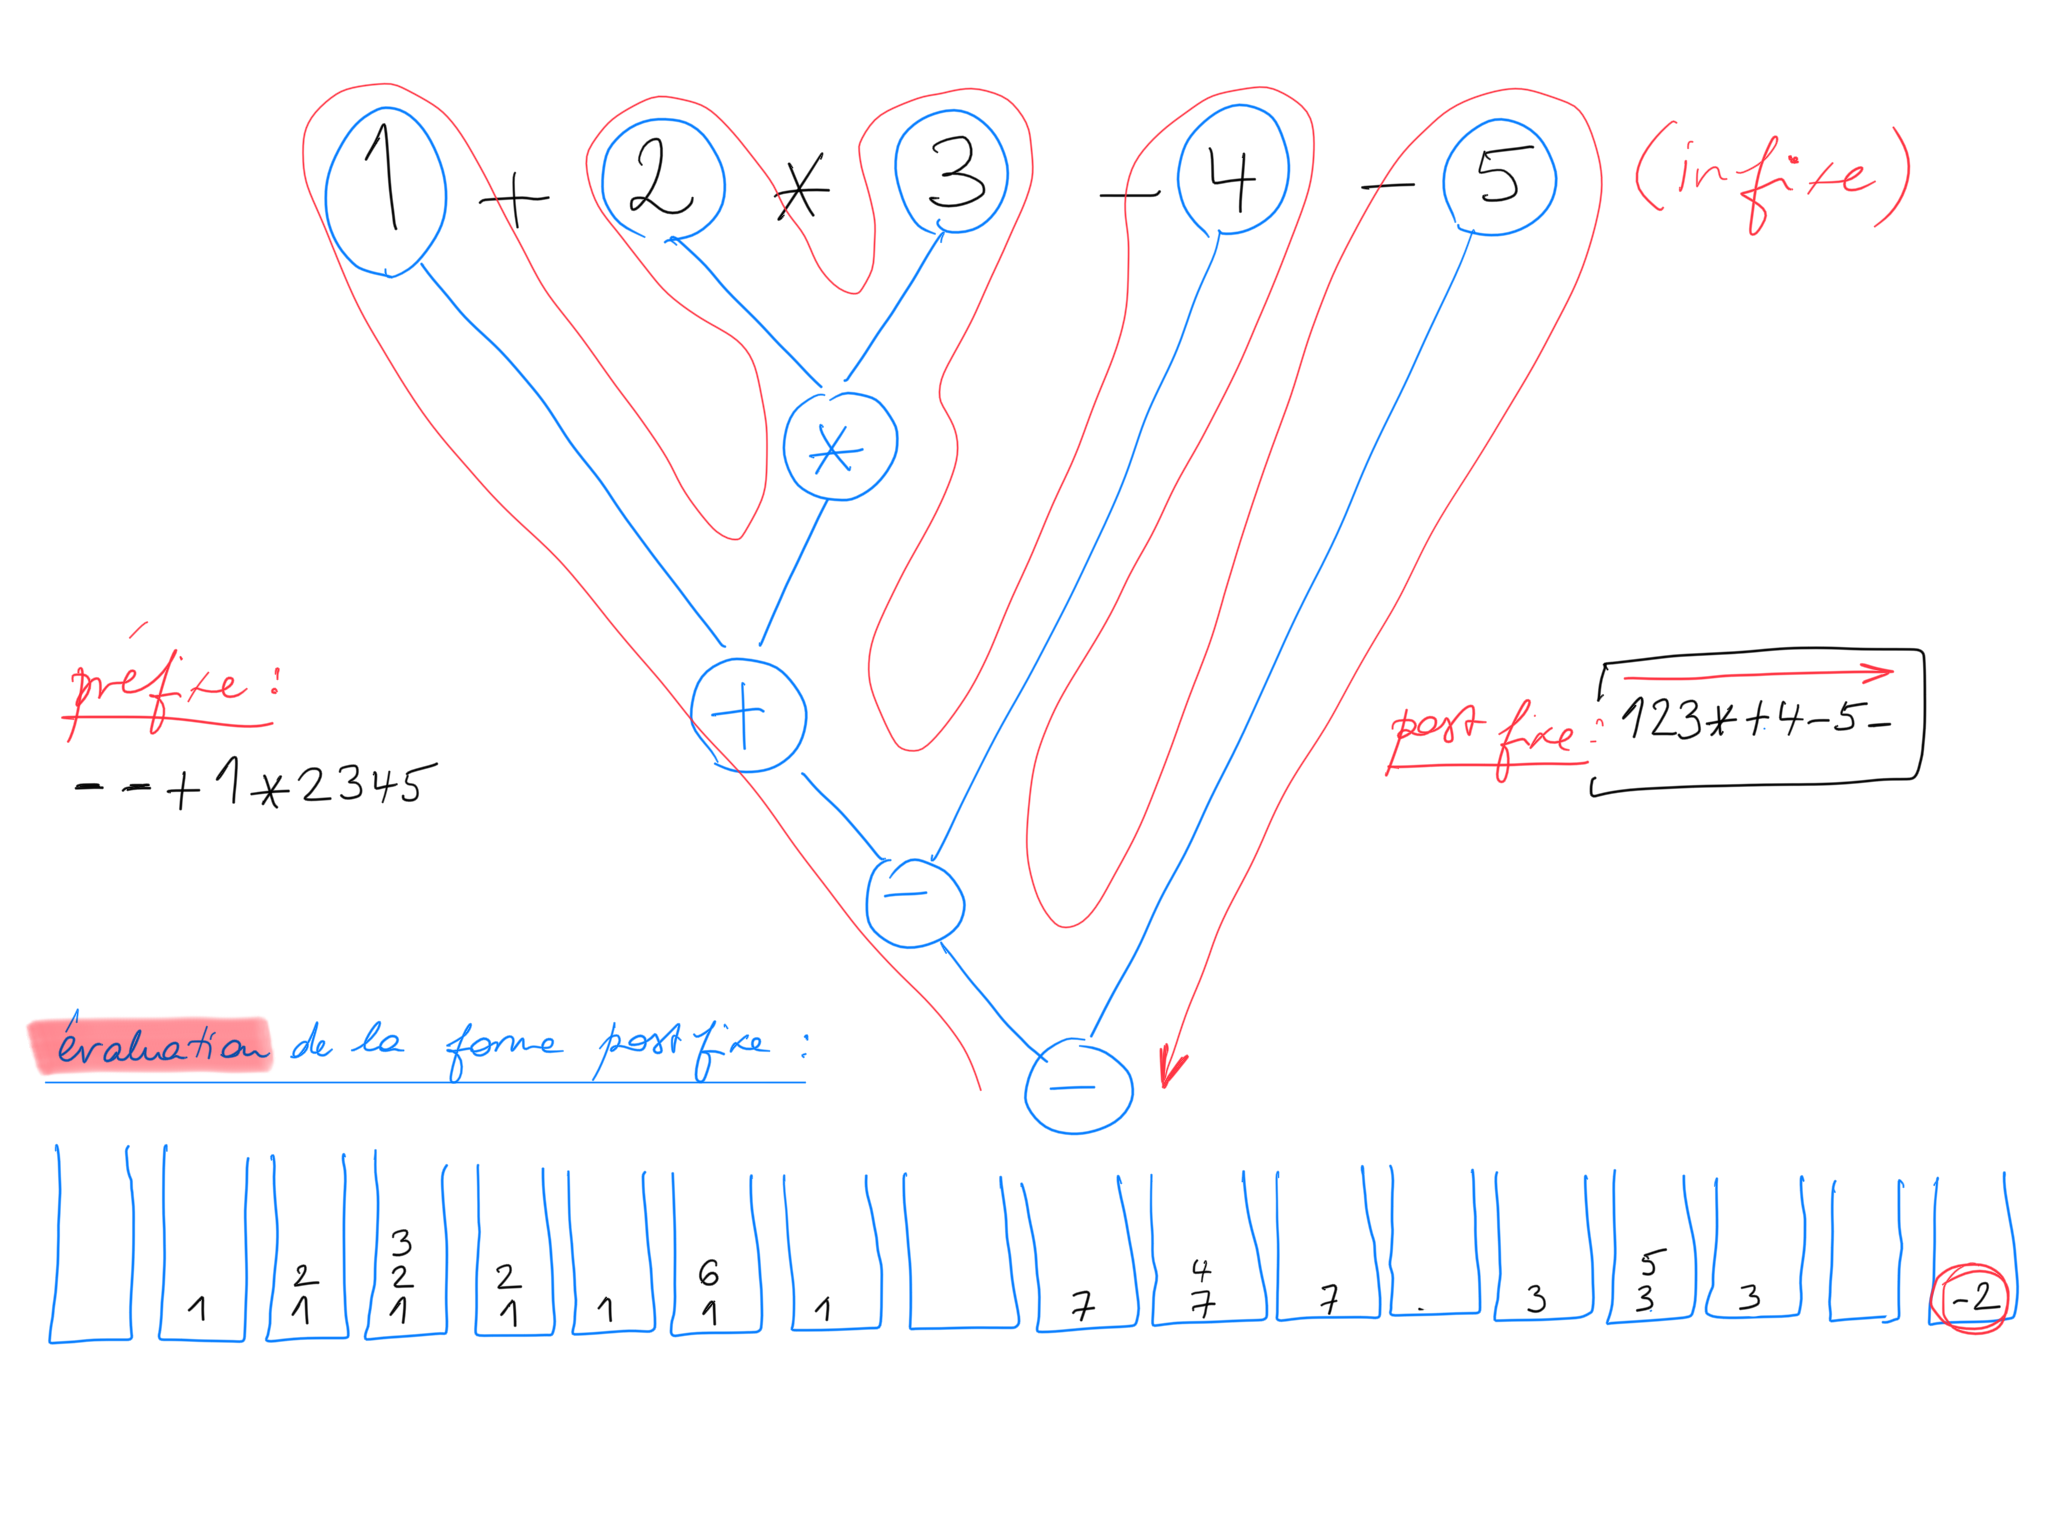 1 + 2 * 3 - 4 - 5 (infixe)
*
+
préfixe :
- - + 1 * 2 3 4 5
post fixe : 1 2 3 * + 4 - 5 -
-
-
évaluation de la forme post fixe :
3 5
2 3 2 2 6 4
1 1 1 1 1 1 1 7 7 7 . 3 3 3 -2